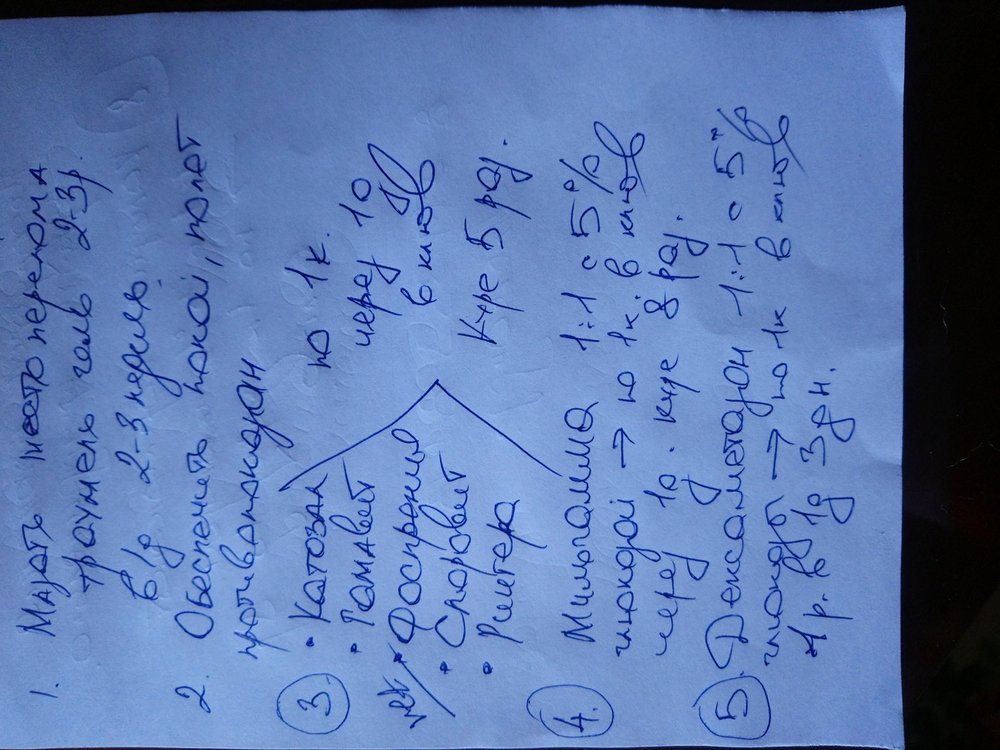 1. Мазать место перелома
траумель гель 2-3р
в 1д 2-3 недели.
2. Обеспечить покой, полет
противопоказан
3. • Катозал
• Гамавит
• Фоспренил
• Споровит
• Рингера
по 1к.
через 1д
в клюв
Курс 5 раз.
4. Мильгамма 1:1 с 5%
глюкозой → по 1к. в клюв
через 1д. курс 8 раз.
5. Дексаметазон 1:1 с 5%
глюкозой → по 1к в клюв
1р. в 1д 3 дн.